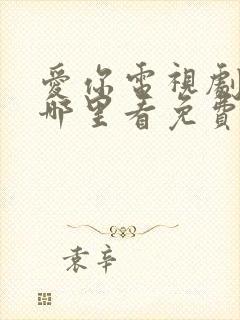 愛你電視劇
哪里看免費
袁辛